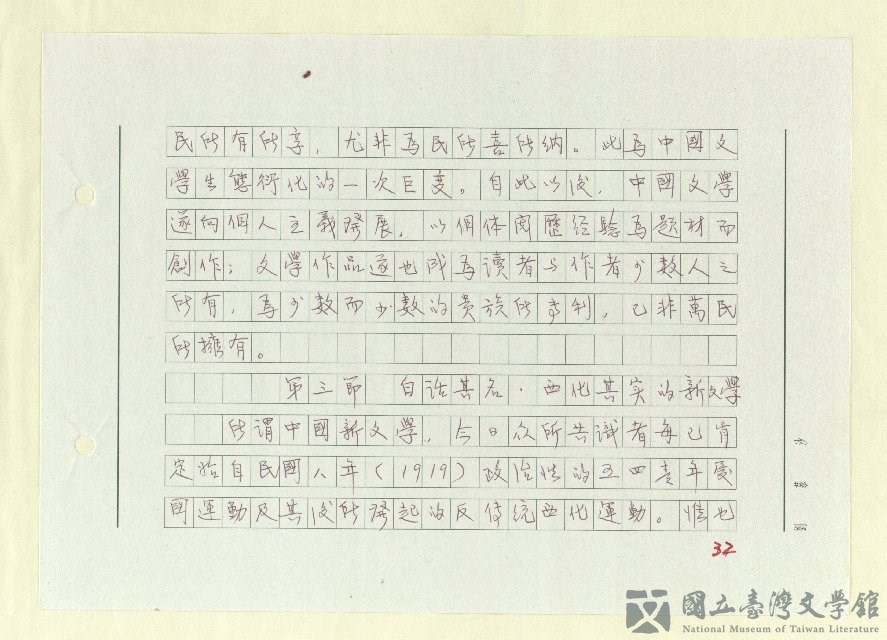 民所有所享，尤非為民所喜所納。此為中國文
學生態衍化的一次巨度。自此以後，中國文學
遂向個人主義發展，以個体閱歷经驗為題材而
創作；文學作品遂也成為讀者与作者少数人之
所有，為少数而少數的贵族所專利，已非萬民
所擁有。
第三節 白话其名·西化其实的新文學
所謂中國新文學，今日众所共識者每已肯
定始自民國八年（1919）政治性的五四青年愛
國運動及其後所發起的反传統西化運動。惟也
32
國立臺灣文學館
National Museum of Taiwan Literature